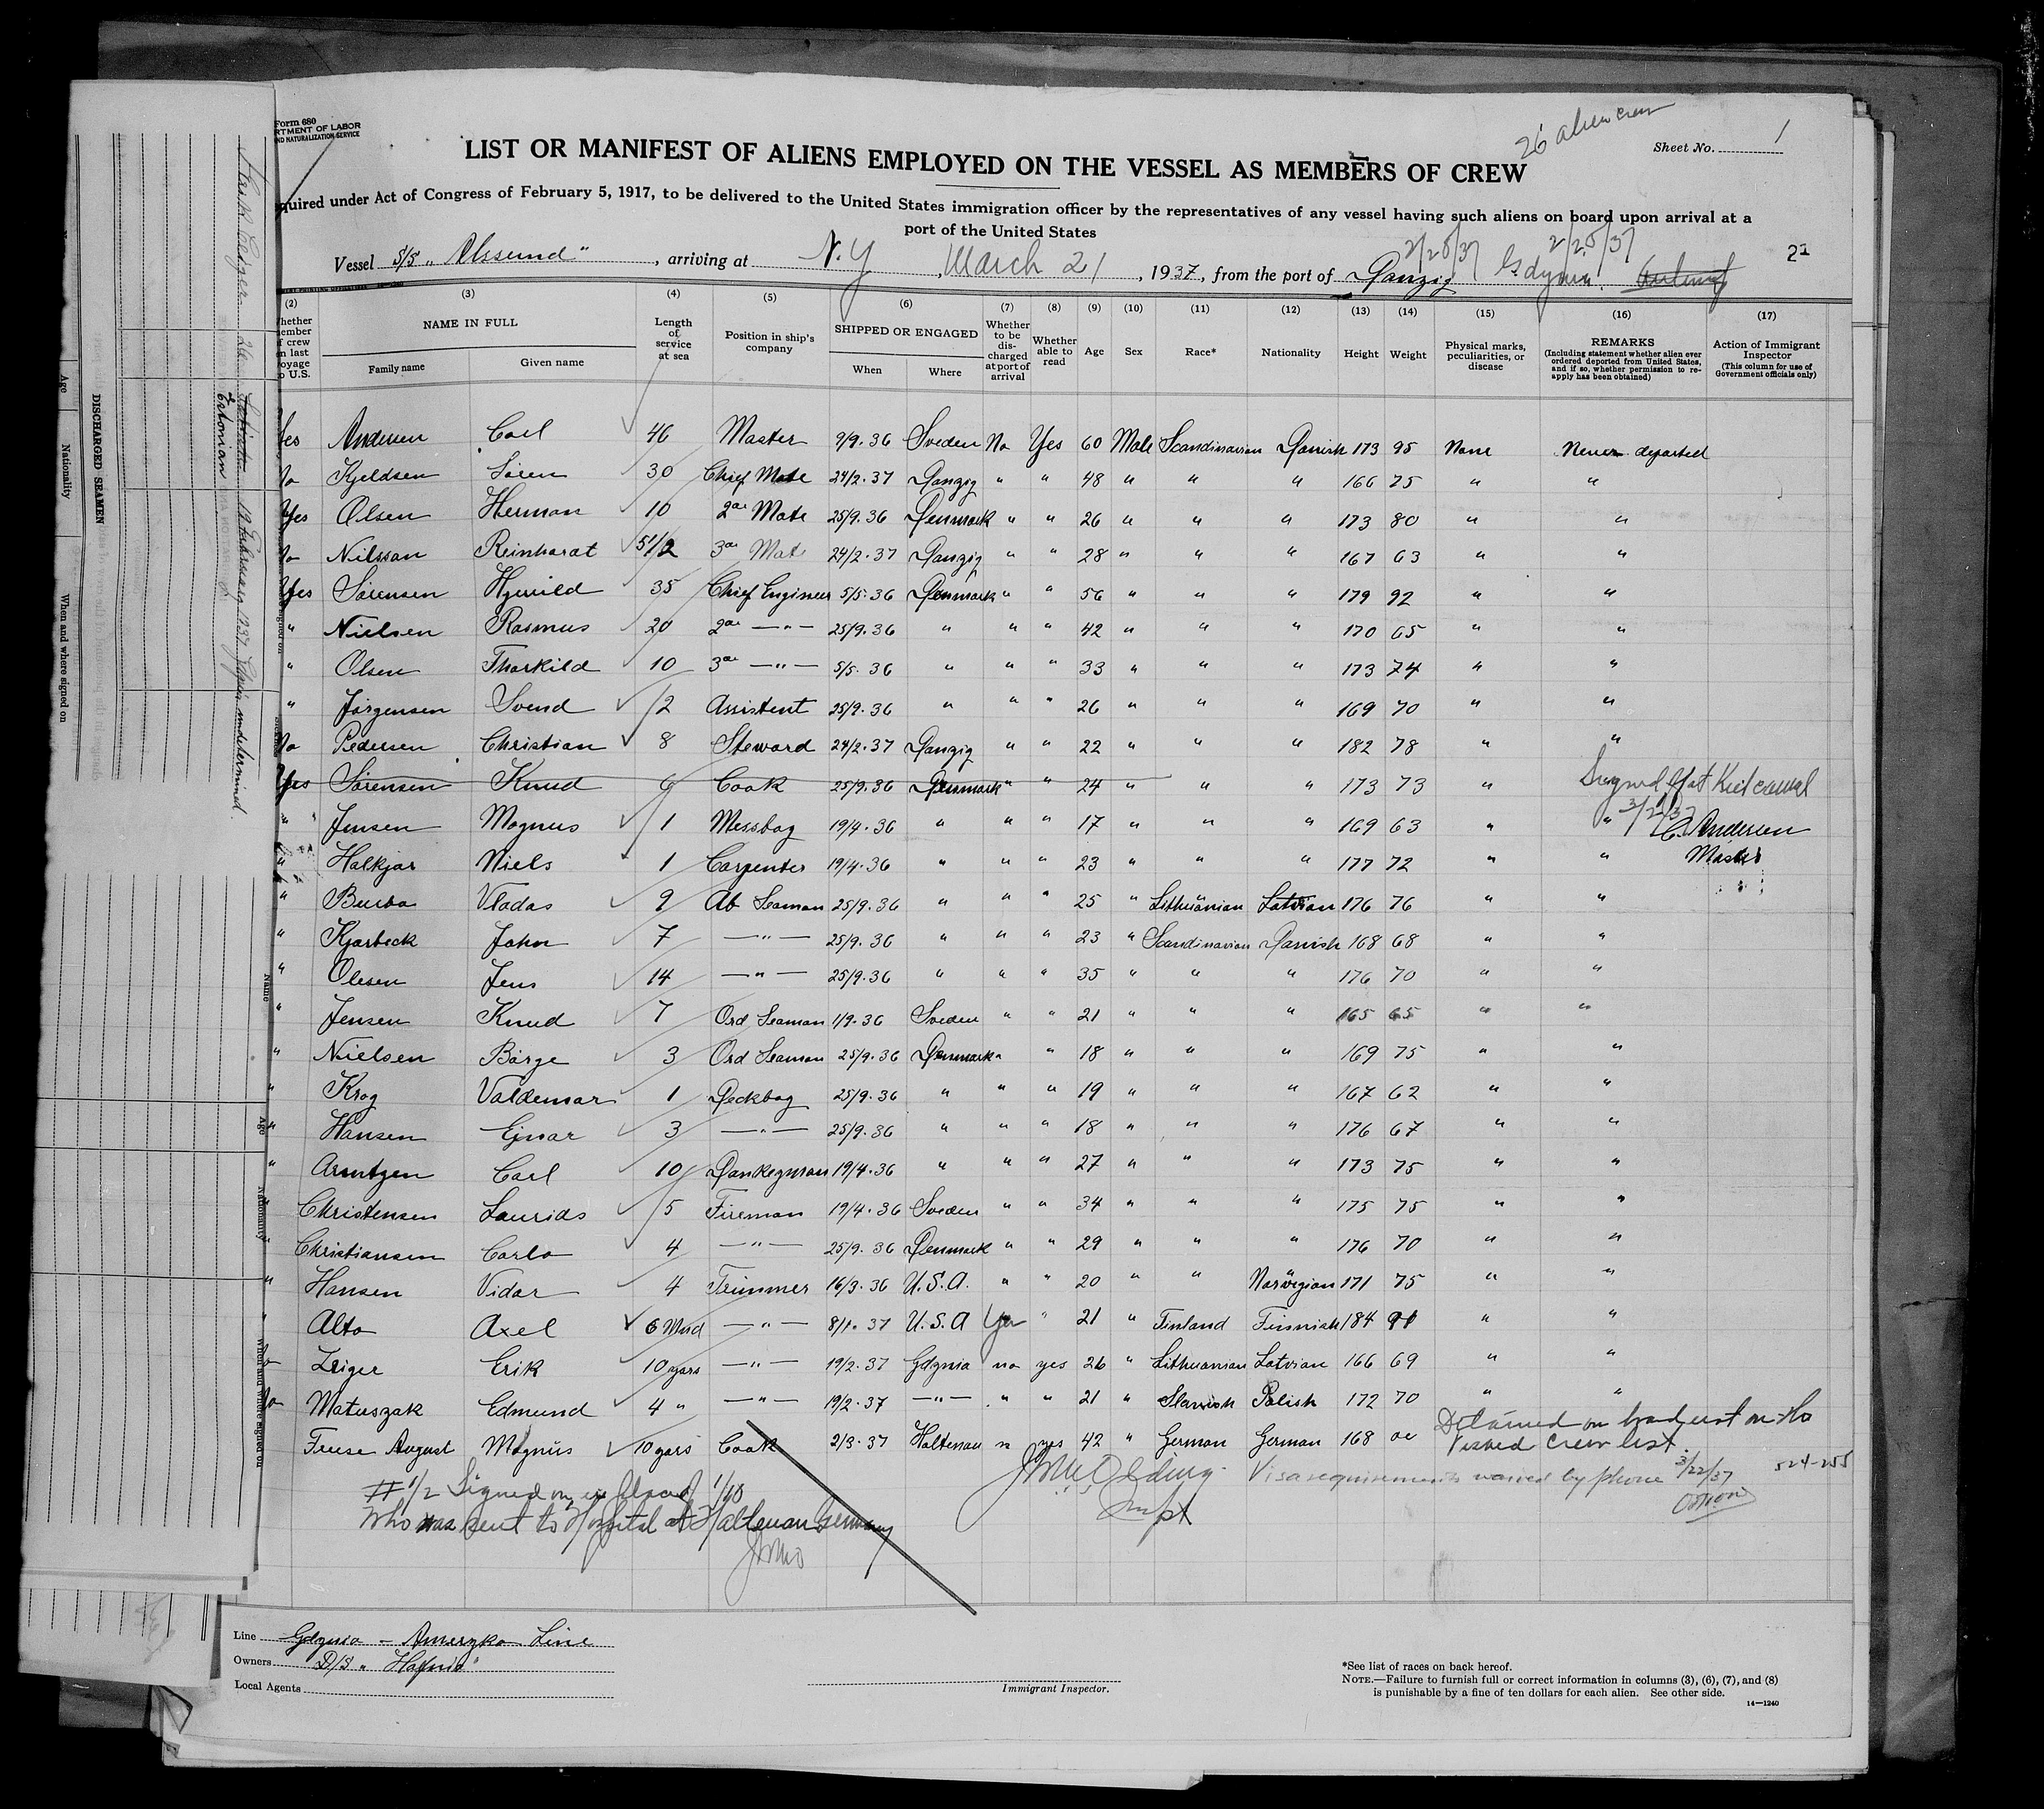 Form 680
RTMENT OF LABOR
ND NATURALIZATION SERVICE
26 alien crew
Sheet No. 1
LIST OR MANIFEST OF ALIENS EMPLOYED ON THE VESSEL AS MEMBERS OF CREW
quired under Act of Congress of February 5, 1917, to be delivered to the United States immigration officer by the representatives of any vessel having such aliens on board upon arrival at a
port of the United States
2/20/37 2/20/37
Vessel S/S „Alssund“, arriving at N.Y, March 21, 1937, from the port of Danzig Gdynia.
(2) (3) (4) (5) (6) (7) (8) (9) (10) (11) (12) (13) (14) (15) (16) (17)
hether member f crew n last oyage o U.S.
NAME IN FULL
Family name Given name
Length of service at sea
Position in ship's company
SHIPPED OR ENGAGED
When Where
Whether to be discharged at port of arrival
Whether able to read
Age Sex Race* Nationality Height Weight
Physical marks, peculiarities, or disease
REMARKS
(Including statement whether alien ever ordered deported from United States, and if so, whether permission to reapply has been obtained)
Action of Immigrant Inspector
(This column for use of Government officials only)
Yes Andersen Carl 46 Master 9/9.36 Sveden No Yes 60 Male Scandinavian Danish 173 95 None Never deported
No Kjeldsen Søren 30 Chief Mate 24/2.37 Danzig " " 48 " " " 166 75 " "
Yes Olsen Herman 10 2nd Mate 25/9.36 Denmark " " 26 " " " 173 80 " "
No Nilsson Reinhardt 5 1/2 3rd Mate 24/2.37 Danzig " " 28 " " " 167 63 " "
Yes Sørensen Hjerrild 35 Chief Engineer 5/5.36 Denmark " " 56 " " " 179 92 " "
" Nielsen Rasmus 20 2nd —"— 25/9.36 " " " 42 " " " 170 65 " "
" Olsen Thorkild 10 3rd —"— 5/5.36 " " " 33 " " " 173 74 " "
" Jørgensen Svend 12 Assistent 25/9.36 " " " 26 " " " 169 70 " "
No Pedersen Christian 8 Steward 24/2.37 Danzig " " 22 " " " 182 78 " "
Yes Sørensen Knud 6 Cook 25/9.36 Denmark " " 24 " " " 173 73 " Signed off at Kiel canal
" Jensen Magnus 1 Messboy 19/4.36 " " " 17 " " " 169 63 " " 3/2/37 C. Andersen
" Halkjær Niels 1 Carpenter 19/4.36 " " " 23 " " " 177 72 " " Master
" Burba Vladas 9 Ab Seaman 25/9.36 " " " 25 " Lithuanian Latvian 176 76 " "
" Kjarbeck John 7 —"— 25/9.36 " " " 23 " Scandinavian Danish 168 68 " "
" Olesen Jens 14 —"— 25/9.36 " " " 35 " " " 176 70 " "
" Jensen Knud 7 Ord Seaman 1/9.36 Sveden " " 21 " " " 165 65 " "
" Nielsen Børge 3 Ord Seaman 25/9.36 Denmark " " 18 " " " 169 75 " "
" Krog Valdemar 1 Deckboy 25/9.36 " " " 19 " " " 167 62 " "
" Hansen Ejnar 3 —"— 25/9.36 " " " 18 " " " 176 67 " "
" Arntzen Carl 10 Dankeyman 19/4.36 " " " 27 " " " 173 75 " "
Christensen Laurids 5 Fireman 19/4.36 Sveden " " 34 " " " 175 75 " "
Christiansen Carlo 4 —"— 25/9.36 Denmark " " 29 " " " 176 70 " "
" Hansen Vidar 4 Trimmer 16/3.36 U.S.A. " " 20 " " Norvegian 171 75 " "
" Alto Axel 6 Mnd —"— 8/1.37 U.S.A Yes " 21 " Finland Finnish 184 91 " "
No Zeiger Erik 10 years —"— 19/2.37 Gdynia no yes 26 " Lithuanian Latvian 166 69 " "
No Matuszak Edmund 4 " —"— 19/2.37 —"— " " 21 " Slavish Polish 172 70 " "
Detained on board
Visaed crew list.
August Magnus 10 years Cook 2/3.37 Holtenau n yes 42 " German German 168
Visa requirements waived by phone 3/22/37
Signed on in place of 1/10
Who was sent to Hospital at Haltenau Germany
Inspt
Line Gdynia – Ameryka Line
Owners D/S „Hafnia“
Local Agents
Immigrant Inspector.
*See list of races on back hereof.
NOTE.—Failure to furnish full or correct information in columns (3), (6), (7), and (8)
is punishable by a fine of ten dollars for each alien. See other side.
14—1240
DISCHARGED SEAMEN
Age
Nationality
When and where signed on
Name
Age
Nationality
When and where signed on
Estonian